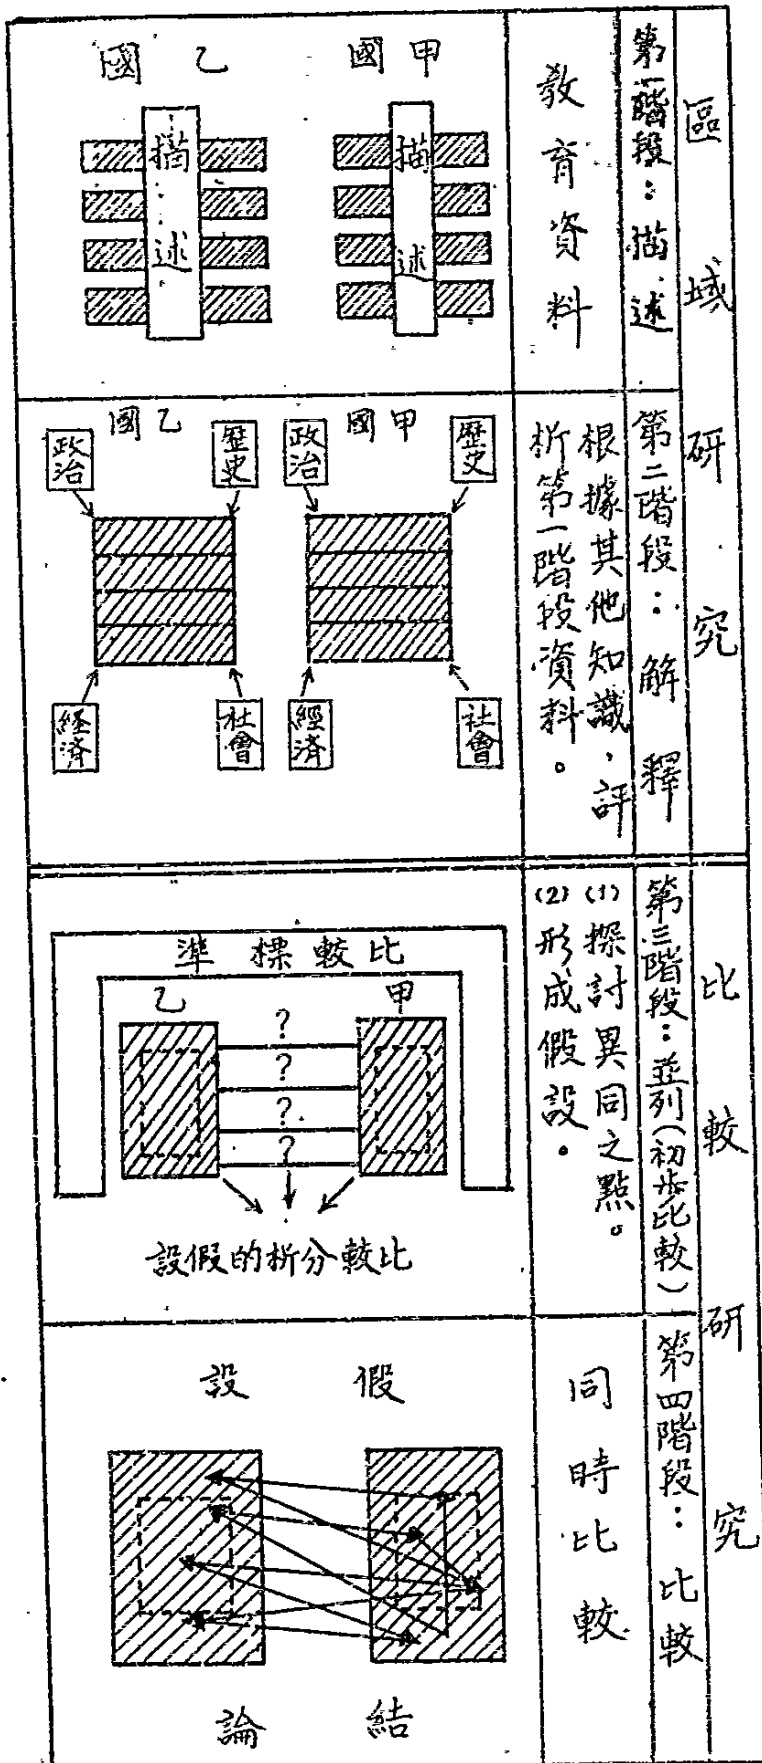 區域研究
第一階段：描述
教育資料
甲國
乙國
描述
描述
第二階段：解釋
根據其他知識，評
析第一階段資料。
甲國
乙國
歷史
政治
歷史
政治
社會
經済
社會
経済
比較研究
第三階段：並列（初步比較）
(1)探討異同之點。
(2)形成假設。
比較標準
甲
乙
?
?
?
?
比較分析的假設
第四階段：比較
同時比較
假設
結論